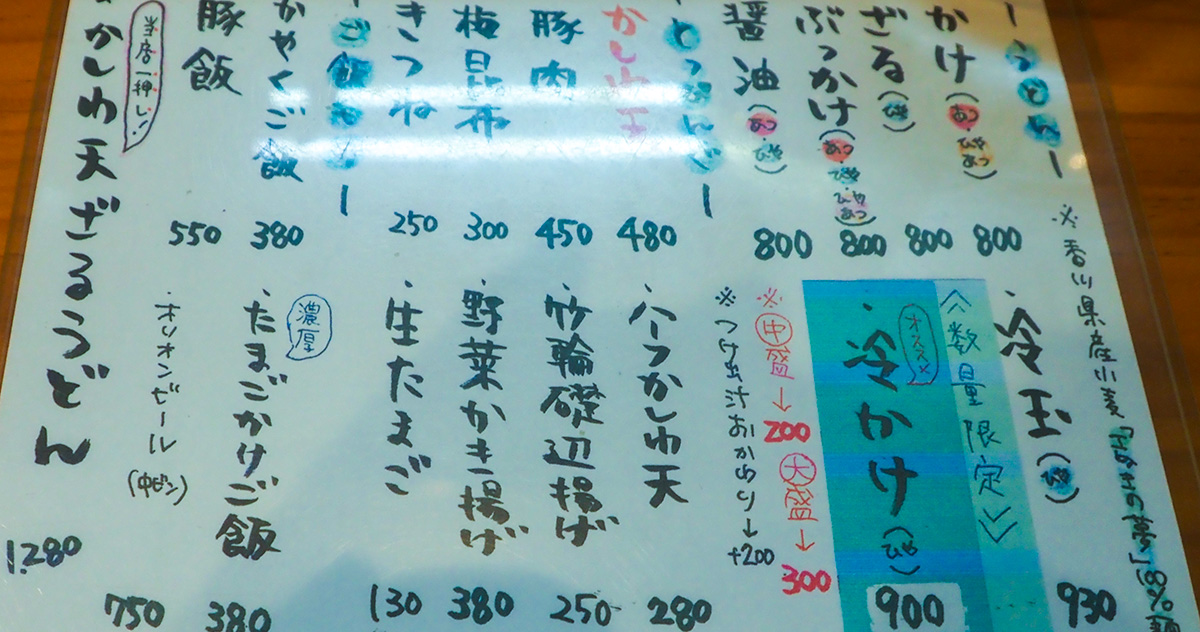 ※香川県産小麦「さぬきの夢」100%麺
ーうどんー
かけ(あつ・ひやあつ) 800
ざる(ひや) 800
ぶっかけ(あつ・ひや・ひやあつ) 800
醤油(あつ・ひや) 800
・冷玉(ひや) 930
<数量限定>
オススメ
・冷かけ(ひや) 900
※中盛→200 大盛→300
※つけ出汁おかわり→+200
ーとっぴんぐー
かしわ天 480
豚肉 450
梅昆布 300
きつね 250
・ハーフかしわ天 280
・竹輪磯辺揚げ 250
・野菜かき揚げ 380
・生たまご 130
ーご飯もんー
かやくご飯 380
豚飯 550
濃厚
・たまごかけご飯 380
・オリオンビール(中ビン) 750
当店一押し!
かしわ天ざるうどん 1.280